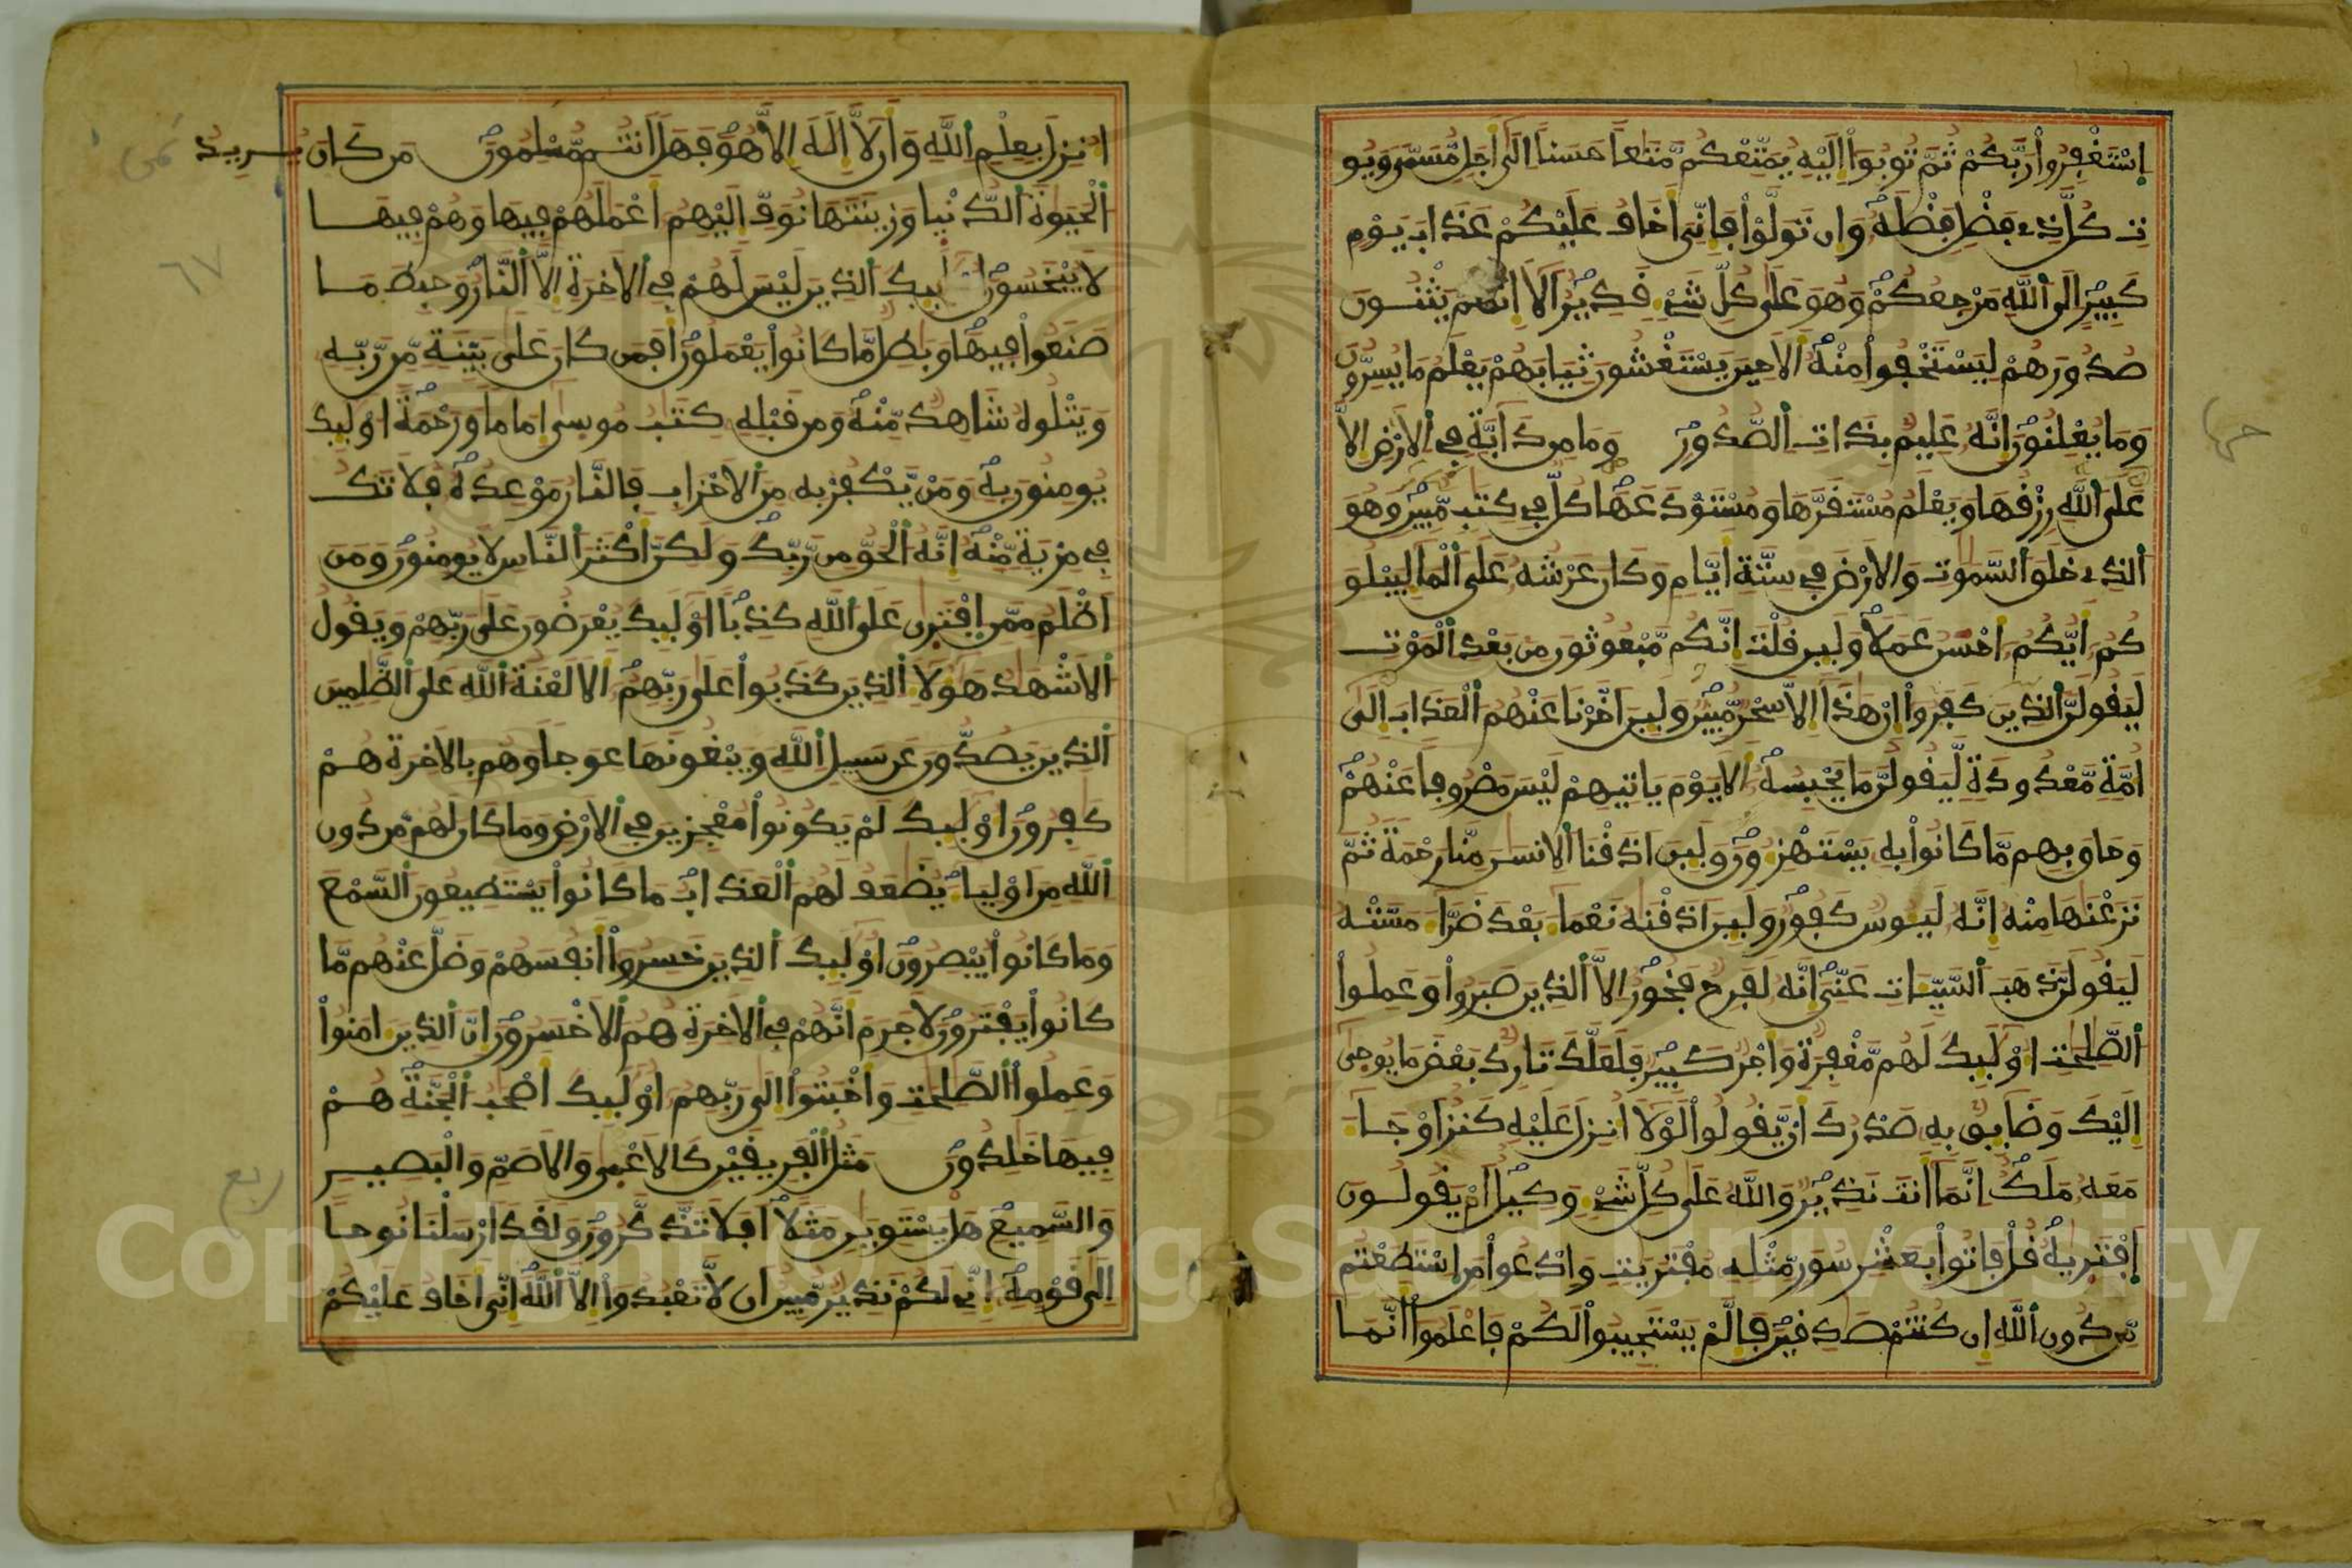 اِسْتَغْفِرُواْ رَبَّكُمْ ثُمَّ تُوبُواْ إِلَيْهِ يُمَتِّعْكُم مَّتَٰعاً حَسَناً اِلَىٰٓ أَجَلٖ مُّسَمّىٗ وَيُو
تِ كُلَّ ذِے فَضْلٖ فَضْلَهُۥ وَإِن تَوَلَّوْاْ فَإِنِّىَ أَخَافُ عَلَيْكُمْ عَذَابَ يَوْمٖ
كَبِيرٍ اِلَى اَللَّهِ مَرْجِعُكُمْ وَهُوَ عَلَىٰ كُلِّ شَےْءٖ قَدِيرٌ اَلَآ إِنَّهُمْ يَثْنُونَ
صُدُورَهُمْ لِيَسْتَخْفُواْ مِنْهُ أَلَا حِينَ يَسْتَغْشُونَ ثِيَابَهُمْ يَعْلَمُ مَا يُسِرُّونَ
وَمَا يُعْلِنُونَ إِنَّهُۥ عَلِيمٌۢ بِذَاتِ اِلصُّدُورِ وَمَا مِن دَآبَّةٖ فِے اِلَارْضِ إِلَّا
عَلَى اَللَّهِ رِزْقُهَا وَيَعْلَمُ مُسْتَقَرَّهَا وَمُسْتَوْدَعَهَا كُلّٞ فِے كِتَٰبٖ مُّبِينٖ وَهُوَ
اَلذِے خَلَقَ اَلسَّمَٰوَٰتِ وَالَارْضَ فِے سِتَّةِ أَيَّامٖ وَكَانَ عَرْشُهُۥ عَلَى اَلْمَآءِ لِيَبْلُوَ
كُمُۥٓ أَيُّكُمُۥٓ أَحْسَنُ عَمَلاٗ وَلَئِن قُلْتَ إِنَّكُم مَّبْعُوثُونَ مِنۢ بَعْدِ اِلْمَوْتِ
لَيَقُولَنَّ اَلذِينَ كَفَرُوٓاْ إِنْ هَٰذَآ إِلَّا سِحْرٞ مُّبِينٞ وَلَئِنَ اَخَّرْنَا عَنْهُمُ اُلْعَذَابَ إِلَىٰٓ
أُمَّةٖ مَّعْدُودَةٖ لَّيَقُولُنَّ مَا يَحْبِسُهُۥٓ أَلَا يَوْمَ يَاتِيهِمْ لَيْسَ مَصْرُوفاً عَنْهُمْ
وَحَاقَ بِهِم مَّا كَانُواْ بِهِۦ يَسْتَهْزِءُونَ وَلَئِنَ اَذَقْنَا اَلِانسَٰنَ مِنَّا رَحْمَةٗ ثُمَّ
نَزَعْنَٰهَا مِنْهُ إِنَّهُۥ لَيَـُٔوسٞ كَفُورٞ وَلَئِنَ اَذَقْنَٰهُ نَعْمَآءَ بَعْدَ ضَرَّآءَ مَسَّتْهُ
لَيَقُولَنَّ ذَهَبَ اَلسَّيِّـَٔاتُ عَنِّىَ إِنَّهُۥ لَفَرِحٞ فَخُورٌ اِلَّا اَلذِينَ صَبَرُواْ وَعَمِلُواْ
اُلصَّٰلِحَٰتِ أُوْلَٰٓئِكَ لَهُم مَّغْفِرَةٞ وَأَجْرٞ كَبِيرٞ فَلَعَلَّكَ تَارِكُۢ بَعْضَ مَا يُوحَىٰٓ
إِلَيْكَ وَضَآئِقُۢ بِهِۦ صَدْرُكَ أَنْ يَّقُولُواْ لَوْلَآ أُنزِلَ عَلَيْهِ كَنزٌ اَوْ جَآءَ
مَعَهُۥ مَلَكٌ اِنَّمَآ أَنتَ نَذِيرٞ وَاللَّهُ عَلَىٰ كُلِّ شَےْءٖ وَكِيلٌ اَمْ يَقُولُونَ
اَفْتَر۪يٰهُ قُلْ فَاتُواْ بِعَشْرِ سُوَرٖ مِّثْلِهِۦ مُفْتَرَيَٰتٖ وَادْعُواْ مَنِ اِسْتَطَعْتُم
مِّن دُونِ اِللَّهِ إِن كُنتُمْ صَٰدِقِينَ فَإِلَّمْ يَسْتَجِيبُواْ لَكُمْ فَاعْلَمُوٓاْ أَنَّمَآ
حزب
أُنزِلَ بِعِلْمِ اِللَّهِ وَأَن لَّآ إِلَٰهَ إِلَّا هُوَ فَهَلَ اَنتُم مُّسْلِمُونَ مَن كَانَ يُرِيدُ
اُلْحَيَوٰةَ اَلدُّنْيَا وَزِينَتَهَا نُوَفِّ إِلَيْهِمُۥٓ أَعْمَٰلَهُمْ فِيهَا وَهُمْ فِيهَا
لَا يُبْخَسُونَ أُوْلَٰٓئِكَ اَلذِينَ لَيْسَ لَهُمْ فِے اِلَاخِرَةِ إِلَّا اَلنَّارُ وَحَبِطَ مَا
صَنَعُواْ فِيهَا وَبَٰطِلٞ مَّا كَانُواْ يَعْمَلُونَ أَفَمَن كَانَ عَلَىٰ بَيِّنَةٖ مِّن رَّبِّهِۦ
وَيَتْلُوهُ شَاهِدٞ مِّنْهُ وَمِن قَبْلِهِۦ كِتَٰبُ مُوسَىٰٓ إِمَاماٗ وَرَحْمَةً اُوْلَٰٓئِكَ
يُومِنُونَ بِهِۦ وَمَنْ يَّكْفُرْ بِهِۦ مِنَ اَلَاحْزَابِ فَالنَّارُ مَوْعِدُهُۥ فَلَا تَكُ
فِے مِرْيَةٖ مِّنْهُ إِنَّهُ اُلْحَقُّ مِن رَّبِّكَ وَلَٰكِنَّ أَكْثَرَ اَلنَّاسِ لَا يُومِنُونَ وَمَنَ
اَظْلَمُ مِمَّنِ اِفْتَر۪ىٰ عَلَى اَللَّهِ كَذِباً اُوْلَٰٓئِكَ يُعْرَضُونَ عَلَىٰ رَبِّهِمْ وَيَقُولُ
اُلَاشْهَٰدُ هَٰٓؤُلَآءِ اِلذِينَ كَذَبُواْ عَلَىٰ رَبِّهِمُۥٓ أَلَا لَعْنَةُ اُللَّهِ عَلَى اَلظَّٰلِمِينَ
اَلذِينَ يَصُدُّونَ عَن سَبِيلِ اِللَّهِ وَيَبْغُونَهَا عِوَجاٗ وَهُم بِالَاخِرَةِ هُمْ
كَٰفِرُونَ أُوْلَٰٓئِكَ لَمْ يَكُونُواْ مُعْجِزِينَ فِے اِلَارْضِ وَمَا كَانَ لَهُم مِّن دُونِ
اِللَّهِ مِنَ اَوْلِيَآءَ يُضَٰعَفُ لَهُمُ اُلْعَذَابُ مَا كَانُواْ يَسْتَطِيعُونَ اَلسَّمْعَ
وَمَا كَانُواْ يُبْصِرُونَ أُوْلَٰٓئِكَ اَلذِينَ خَسِرُوٓاْ أَنفُسَهُمْ وَضَلَّ عَنْهُم مَّا
كَانُواْ يَفْتَرُونَ لَا جَرَمَ أَنَّهُمْ فِے اِلَاخِرَةِ هُمُ اُلَاخْسَرُونَ إِنَّ اَلذِينَ ءَامَنُواْ
وَعَمِلُواْ اُلصَّٰلِحَٰتِ وَأَخْبَتُوٓاْ إِلَىٰ رَبِّهِمُۥٓ أُوْلَٰٓئِكَ أَصْحَٰبُ اُلْجَنَّةِ هُمْ
فِيهَا خَٰلِدُونَ مَثَلُ اُلْفَرِيقَيْنِ كَالَاعْمَىٰ وَالَاصَمِّ وَالْبَصِيرِ
وَالسَّمِيعِ هَلْ يَسْتَوِيَٰنِ مَثَلاً اَفَلَا تَذَّكَّرُونَ وَلَقَدَ اَرْسَلْنَا نُوحاً
اِلَىٰ قَوْمِهِۦٓ إِنِّے لَكُمْ نَذِيرٞ مُّبِينٌ أَن لَّا تَعْبُدُوٓاْ إِلَّا اَللَّهَ إِنِّىَ أَخَافُ عَلَيْكُمْ
ثمن
٦٧
ربع
Copyright © King Saud University
1957